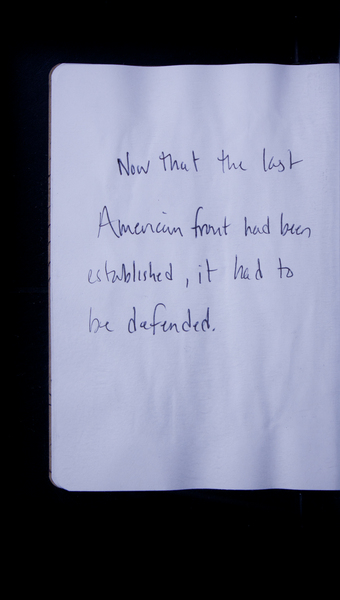 Now that the last
American front had been
established, it had to
be defended.